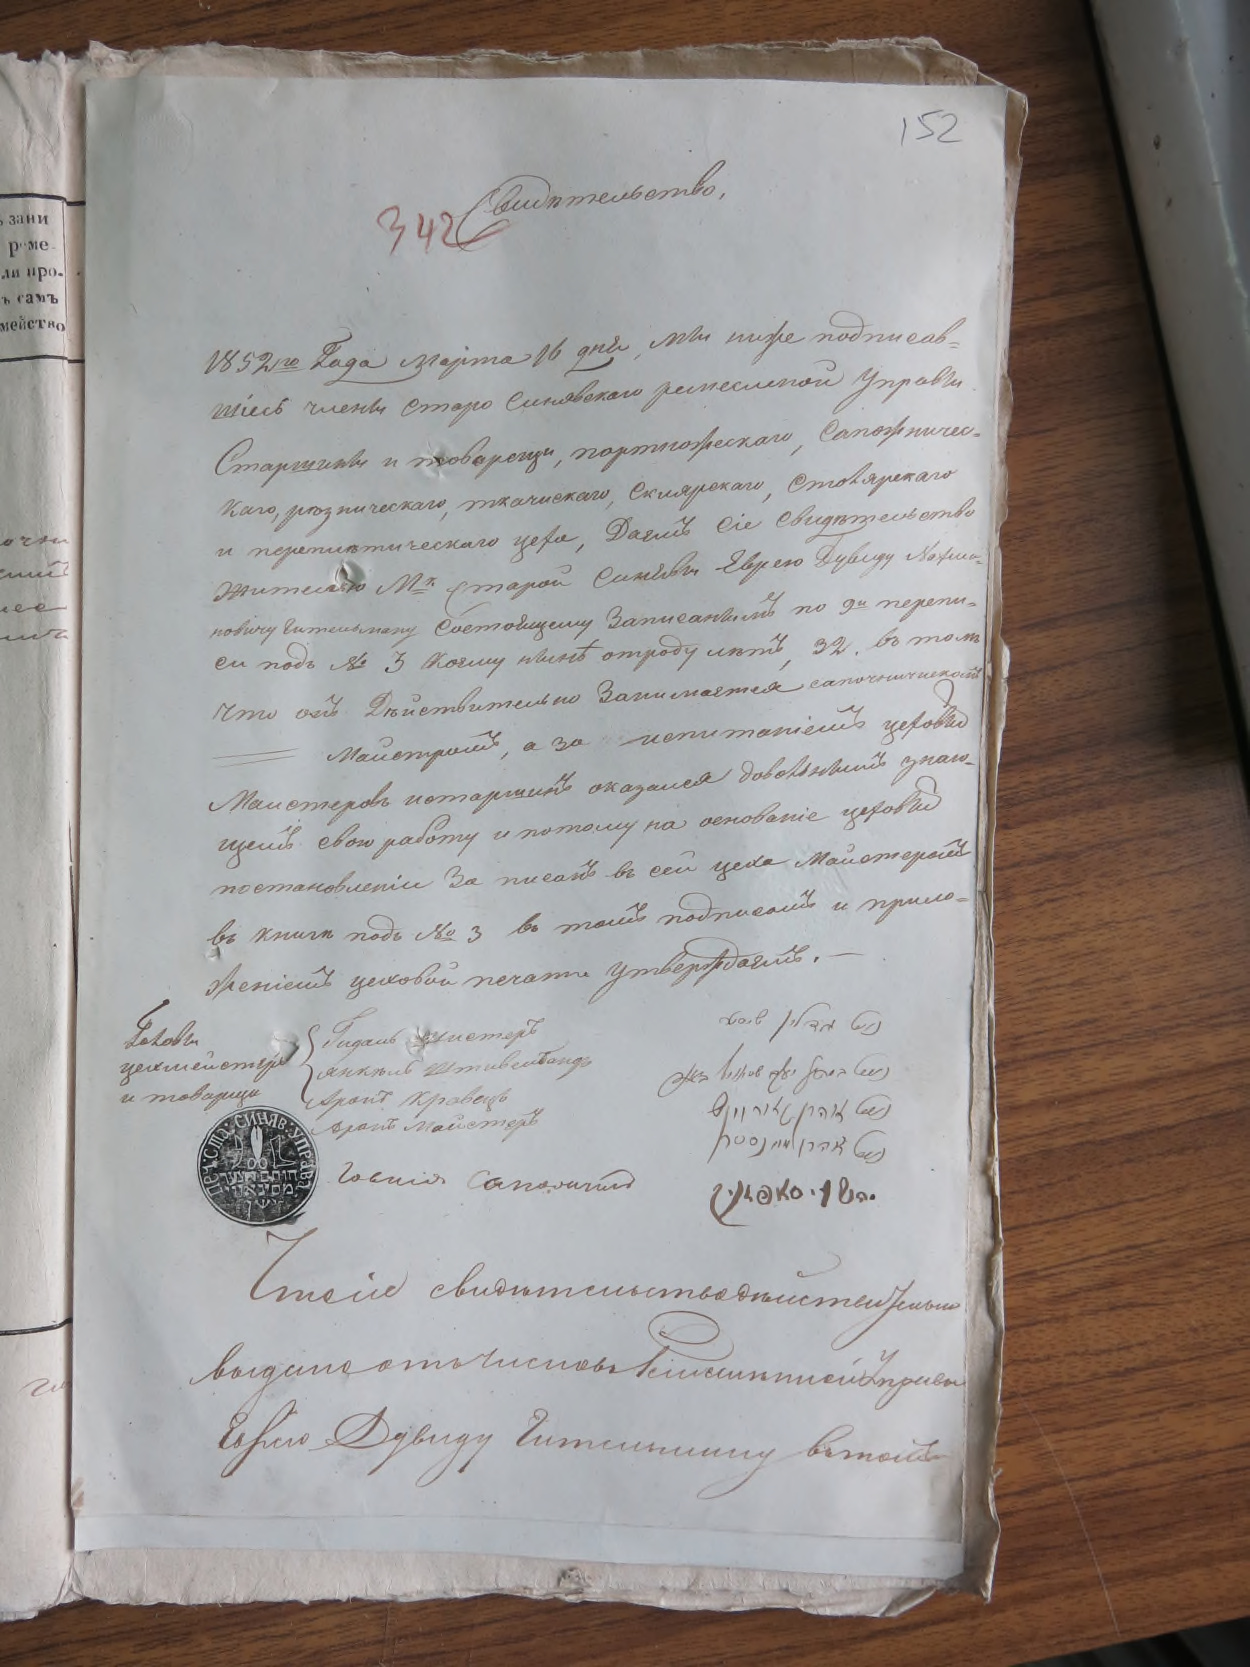 152
Свидѣтельство,
342
1852го Года Марта 16 дня, мы ниже подписав=
шіесь члены Старо Синявскаго ремесленой Управы
Старшины и товарещи, портножескаго, Сапожничес=
каго, рѣзническаго, ткачискаго, Склярскаго, Столярскаго
и переплѣтическаго цеха, Даемъ Сіе Свидѣтельство
Жителью Мк Старой Синявы Еврею Дувиду Нахма=
новичу Гительману Состоящему Записанымъ по 9й перепи=
си подъ № 3 Коему нынѣ отроду лѣтъ, 32. въ томъ
Что онъ Дѣйствительно Занимается сапожничискомъ
Майстромъ, а за испитаніемъ цеховы
Маистеровъ истаршинъ оказался довольнымъ знаю=
щемъ свою работу и потому на основаніе цеховы
постановленіи За писанъ въ сей цеха Майстеромъ
въ книги подъ № 3 въ томъ подписомъ и прило=
женіемъ цеховой печати Утверждаемъ. —
Цеховы
цехмейстеры
и товарищи
Гидаль Шистеръ
Янкель
Аронъ Кравецъ
Аронъ Майстеръ
Сапожникъ
ПЕЧ: СТА: СИНЯВ: УПРАВ:
Что сіе свидѣтельство дѣйствительно
выдано отъ Членовъ Ремеслинной Управы
Еврею Дувиду Гительману въ томъ
ъ зани
реме-
ли про-
ъ самъ
мейство